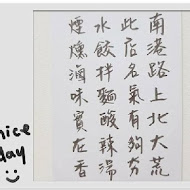 南港路上北大荒
此店名氣有夠夯
水餃拌麵酸辣湯
煙燻滷味實在香
nice
day